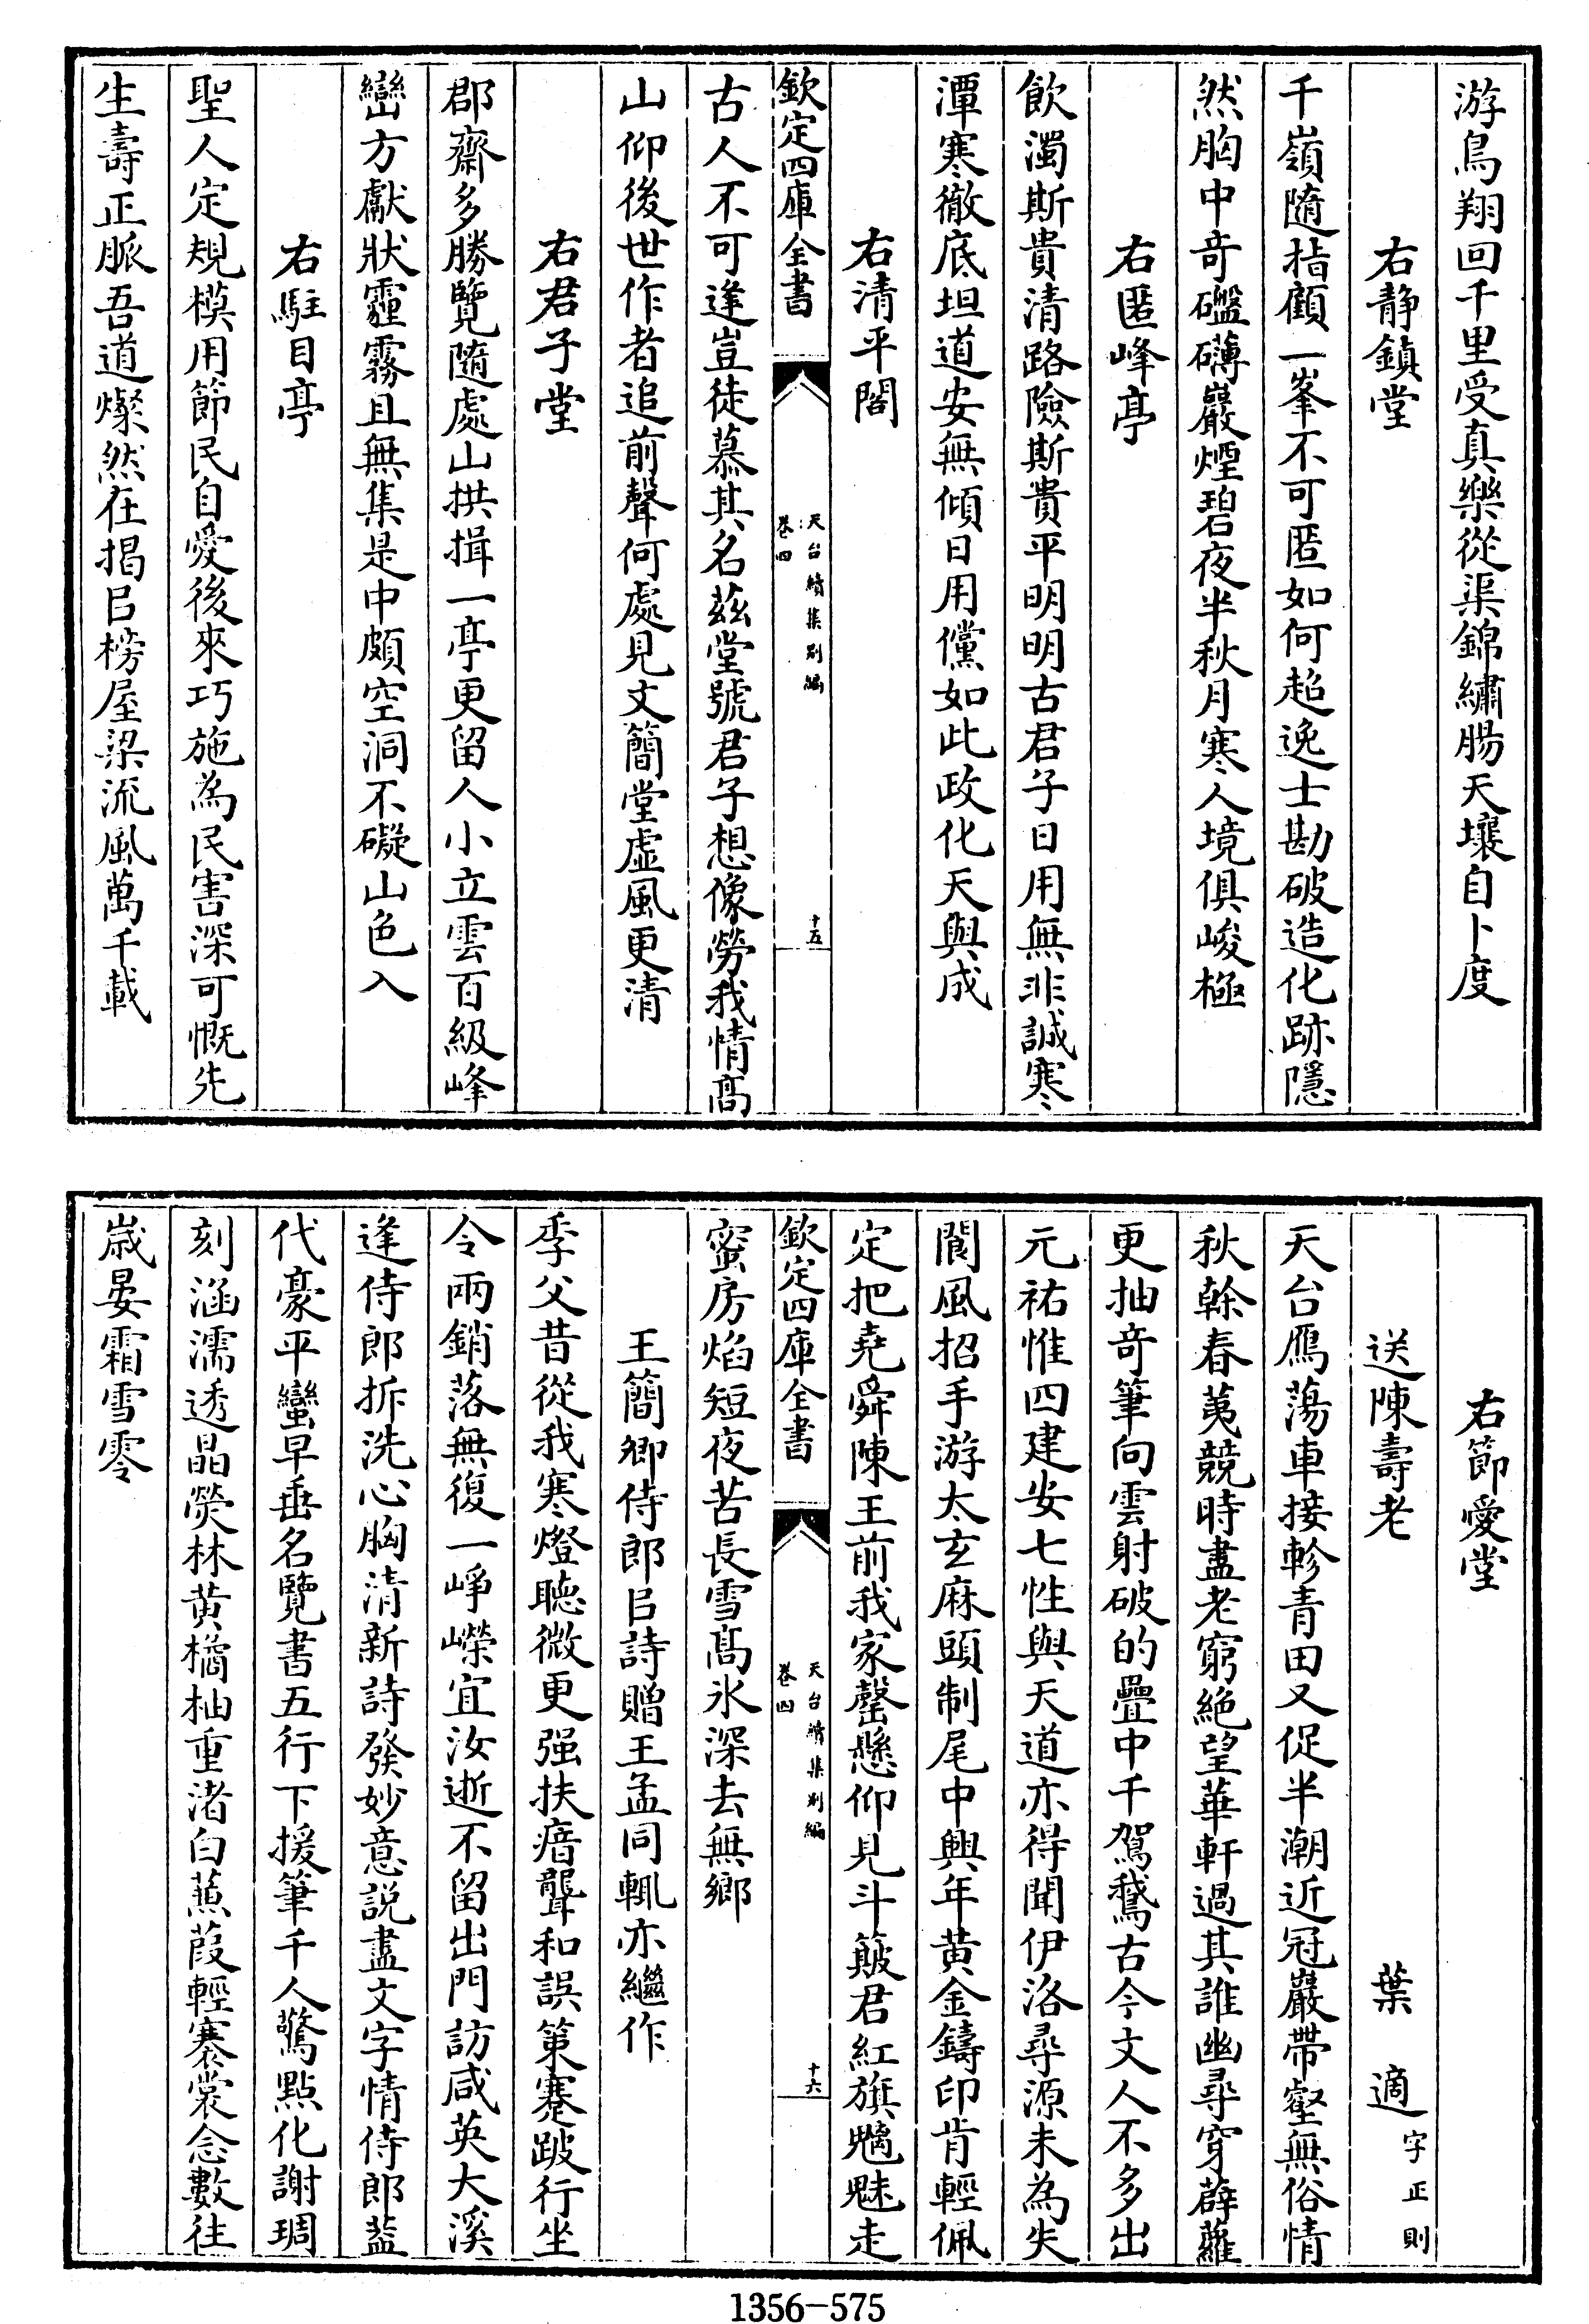 游鳥翔回千里受真樂從渠錦繡腸天壤自卜度
右静鎮堂
千嶺隨指顧一峯不可匿如何超逸士勘破造化跡隱
然胸中奇礧礴巖煙碧夜半秋月寒人境俱峻極
右匿峰亭
飲濁斯貴清路險斯貴平明明古君子日用無非誠寒
潭寒徹底坦道安無傾日用儻如此政化天與成
右清平閣
欽定四庫全書
天台續集别編
卷四
十五
古人不可逢豈徒慕其名茲堂號君子想像勞我情髙
山仰後世作者追前聲何處見文簡堂虛風更清
右君子堂
郡齋多勝覽隨處山拱揖一亭更留人小立雲百級峰
巒方獻狀霾霧且無集是中頗空洞不礙山色入
右駐目亭
聖人定規模用節民自愛後來巧施為民害深可慨先
生壽正脈吾道燦然在揭㠯榜屋梁流風萬千載
右節愛堂
送陳壽老　葉　適字正則
天台鴈蕩車接軫青田又促半潮近冠巖帶壑無俗情
秋幹春荑競時盡老窮絶望華軒過其誰幽尋穿薜蘿
更抽奇筆向雲射破的疊中千駕鵝古今文人不多出
元祐惟四建安七性與天道亦得聞伊洛尋源未為失
閬風招手游太玄麻頭制尾中興年黄金鑄印肯輕佩
定把堯舜陳王前我家罄懸仰見斗簸君紅旗魑魅走
欽定四庫全書
天台續集别編
卷四
十六
蜜房焰短夜苦長雪髙氷深去無鄉
王簡卿侍郎㠯詩贈王孟同輒亦繼作
季父昔從我寒燈聽微更强扶瘖聾和誤策蹇跛行坐
令兩銷落無復一崢嶸宜汝逝不留出門訪咸英大溪
逢侍郎拆洗心胸清新詩發妙意説盡文字情侍郎葢
代豪平蠻早垂名覽書五行下援筆千人驚點化謝琱
刻涵濡透晶熒林黄橘柚重渚白蒹葭輕褰裳念數往
嵗晏霜雪零
1356-575